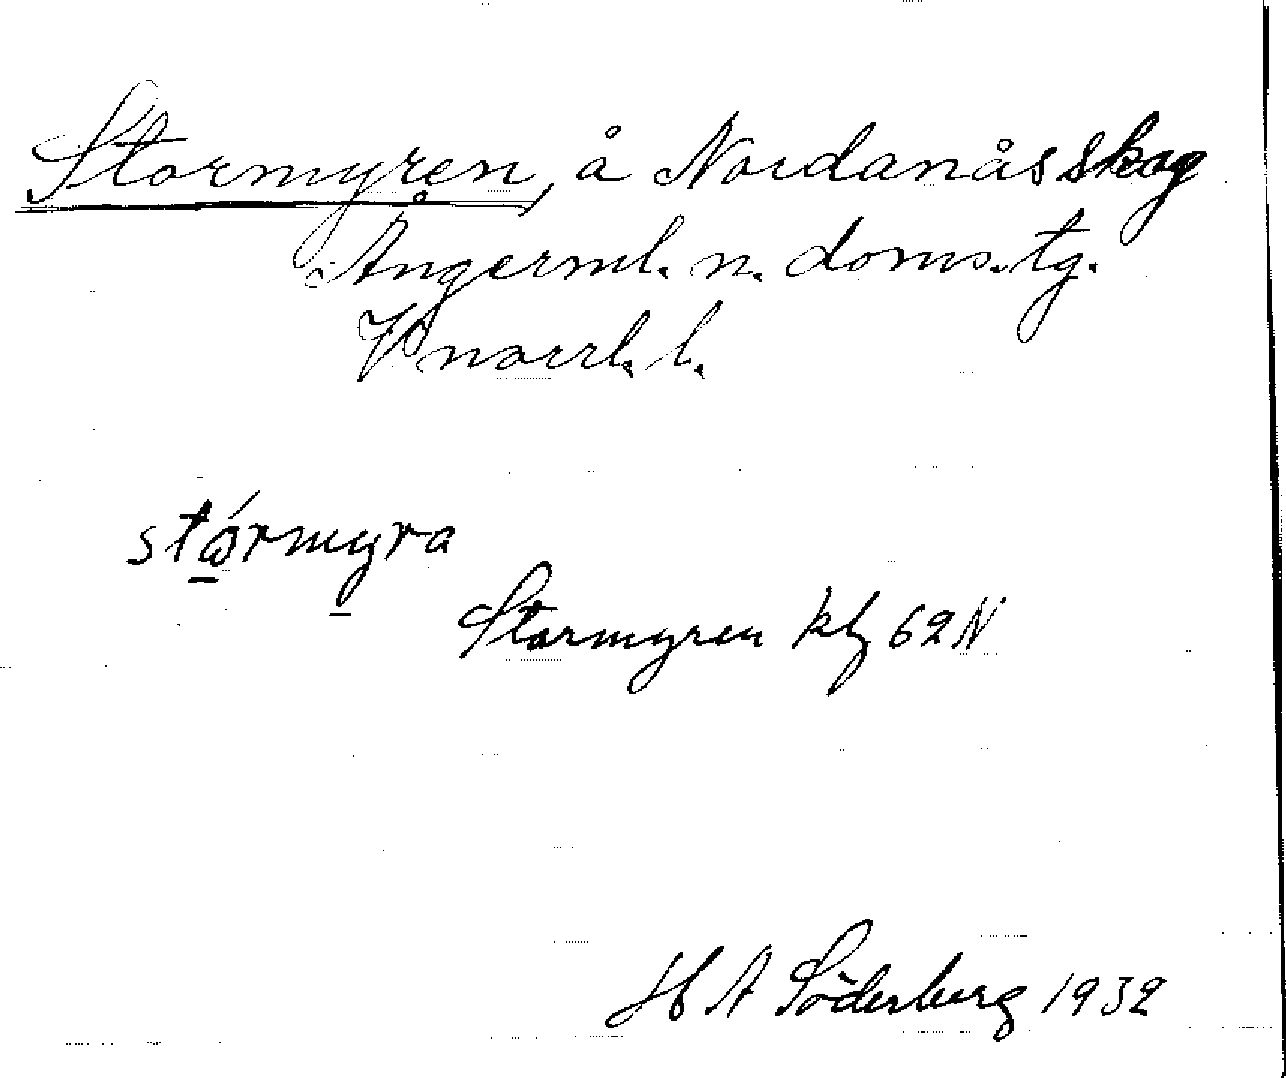 Stormyren, å Nordanås skog
Ångerml. n. doms.tg.
V norrl. l.
stórmyra
Stormyren kbl 62N
H A Söderberg 1932